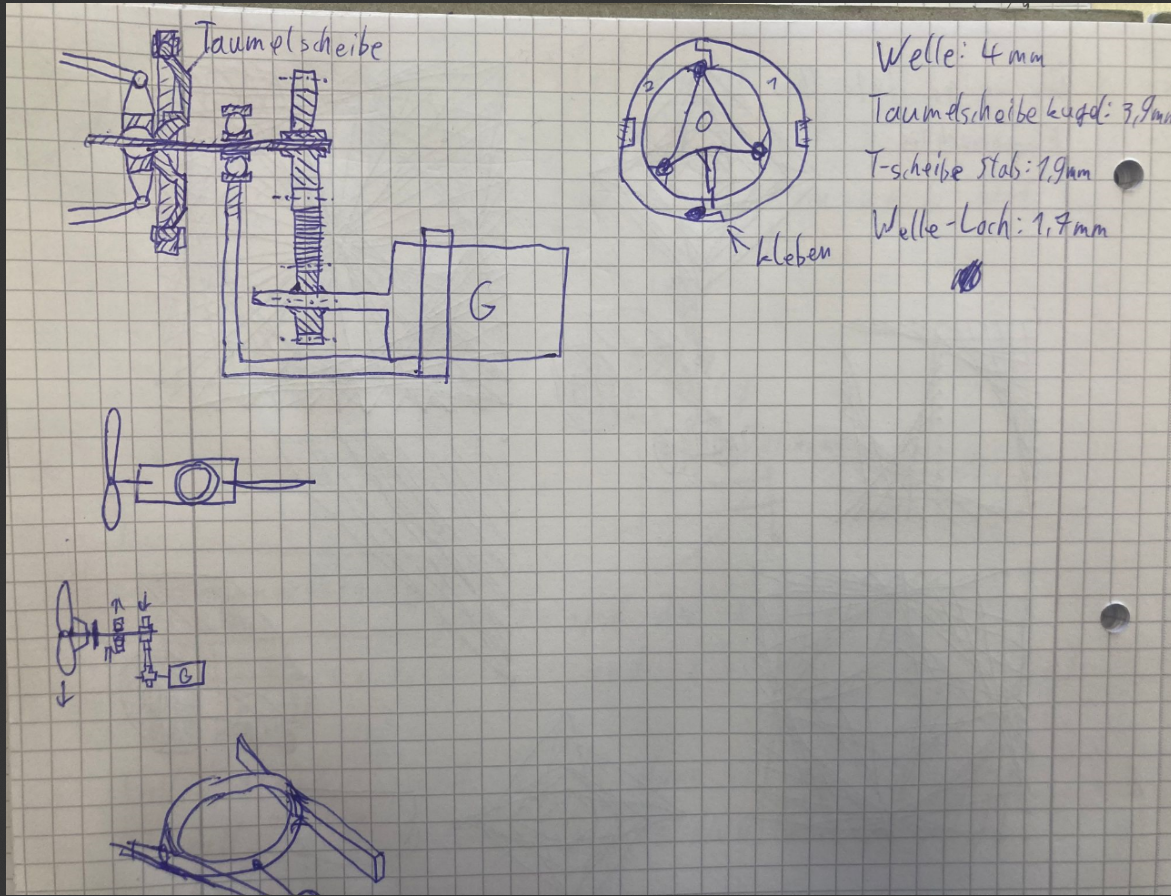 Taumelscheibe
G
2
1
kleben
Welle: 4 mm
Taumelscheibe kugel: 3,9mm
T-scheibe Stab: 1,9mm
Welle-Loch: 1,7mm
G